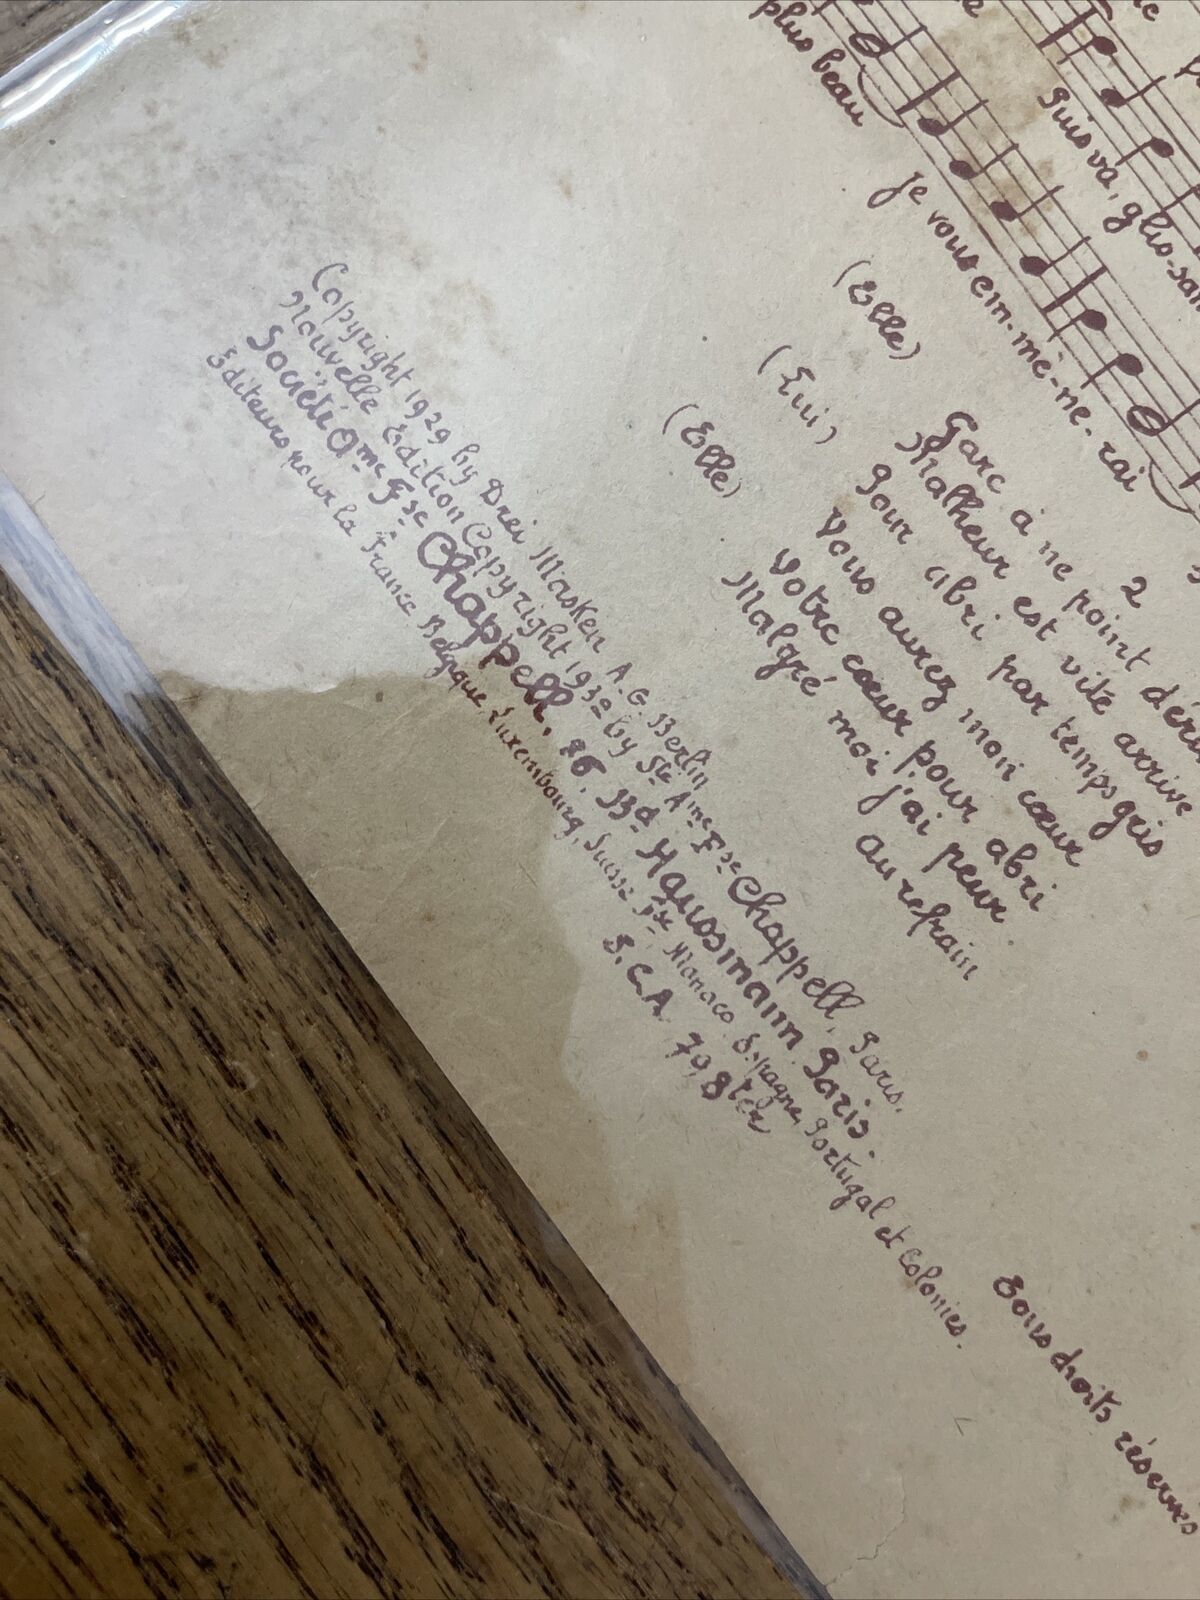 plus beau
puis va, glis-san
je vous em-mè-ne-rai
2
Gare à ne point déri
(Elle) Malheur est vite arrivé
Pour abri par temps gris
(Lui) Vous aurez mon cœur
(Elle) Votre cœur pour abri
Malgré moi j'ai peur.
au refrain
Copyright 1929 by Drei Masken A.G. Berlin
Nouvelle Edition Copyright 1932 by Sté Ame Fse Chappell, Paris.
Société Ame Fse Chappell, 86, Bd Haussmann, Paris.
Editeurs pour la France Belgique Luxembourg, Suisse Fse Monaco, Espagne, Portugal et Colonies.
E.C.A. 798 ter
Tous droits réservés